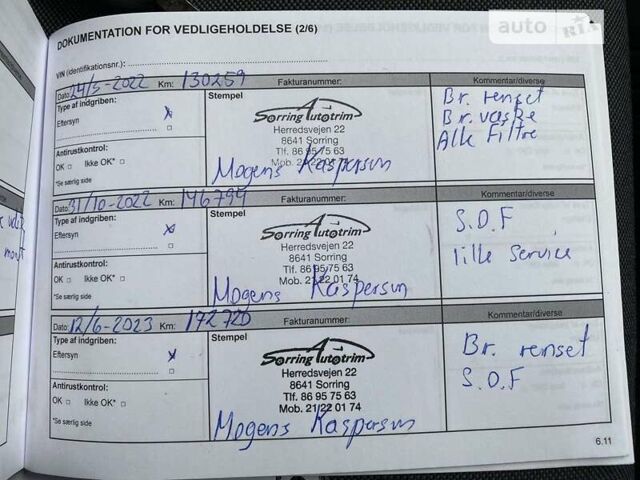 auto RIA
DOKUMENTATION FOR VEDLIGEHOLDELSE (2/6)
VIN (identifikationsnr.):
Dato: 24/5-2022 Km: 130259 Fakturanummer: Kommentar/diverse
Type af indgriben:
Eftersyn
Antirustkontrol:
OK Ikke OK*
*Se særlig side
Stempel
Sorring Autotrim
Herredsvejen 22
8641 Sorring
Tlf. 86 95 75 63
Mob. 21 22 01 74
Mogens Kaspersen
Br. renset
Br. væske
Alle Filtre
Dato: 31/10-2022 Km: 146794 Fakturanummer: Kommentar/diverse
Type af indgriben:
Eftersyn
Antirustkontrol:
OK Ikke OK*
*Se særlig side
Stempel
Sorring Autotrim
Herredsvejen 22
8641 Sorring
Tlf. 86 95 75 63
Mob. 21 22 01 74
Mogens Kaspersen
S.O.F
lille service
Dato: 12/6-2023 Km: 172720 Fakturanummer: Kommentar/diverse
Type af indgriben:
Eftersyn
Antirustkontrol:
OK Ikke OK*
*Se særlig side
Stempel
Sorring Autotrim
Herredsvejen 22
8641 Sorring
Tlf. 86 95 75 63
Mob. 21 22 01 74
Mogens Kaspersen
Br. renset
S.O.F
6.11